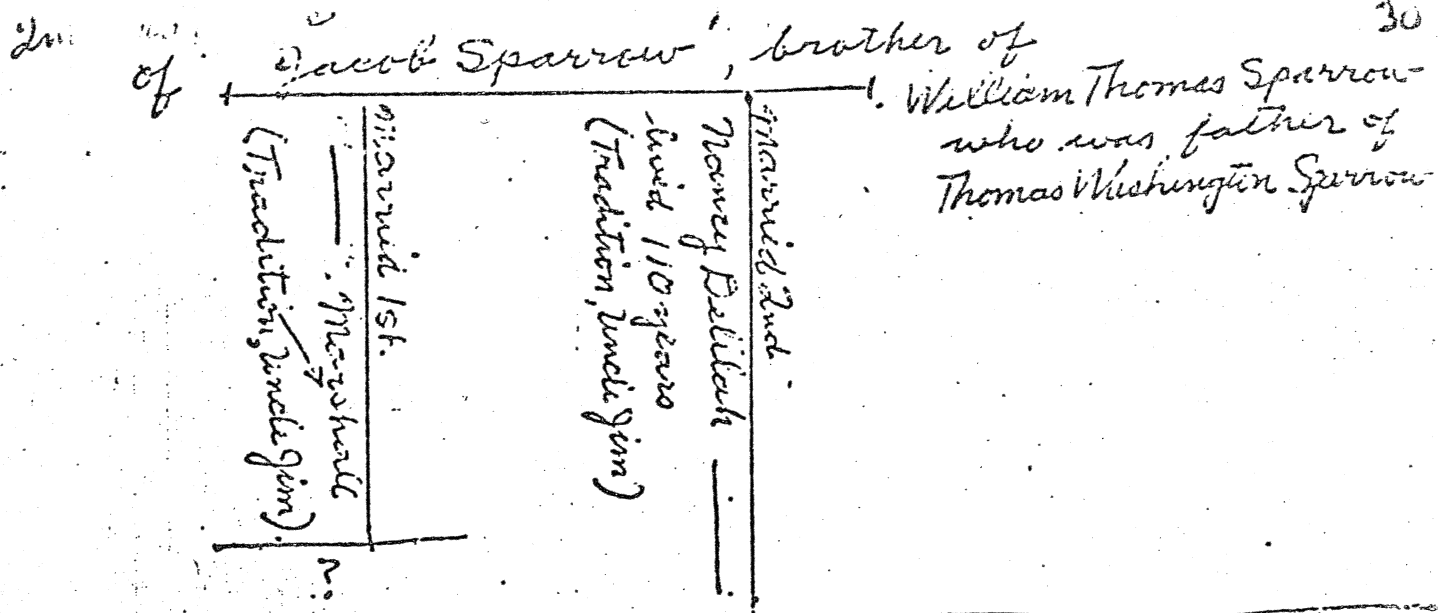 30
of Jacob Sparrow, brother of
William Thomas Sparrow
who was father of
Thomas Washington Sparrow
married 1st.
—— Marshall
(Tradition, Uncle Jim).
married 2nd
Nancy Delilah ——
lived 110 years
(Tradition, Uncle Jim)